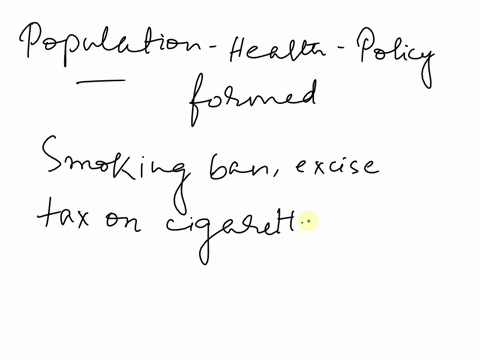 Population - Health - Policy
formed
Smoking ban, excise
tax on cigarett